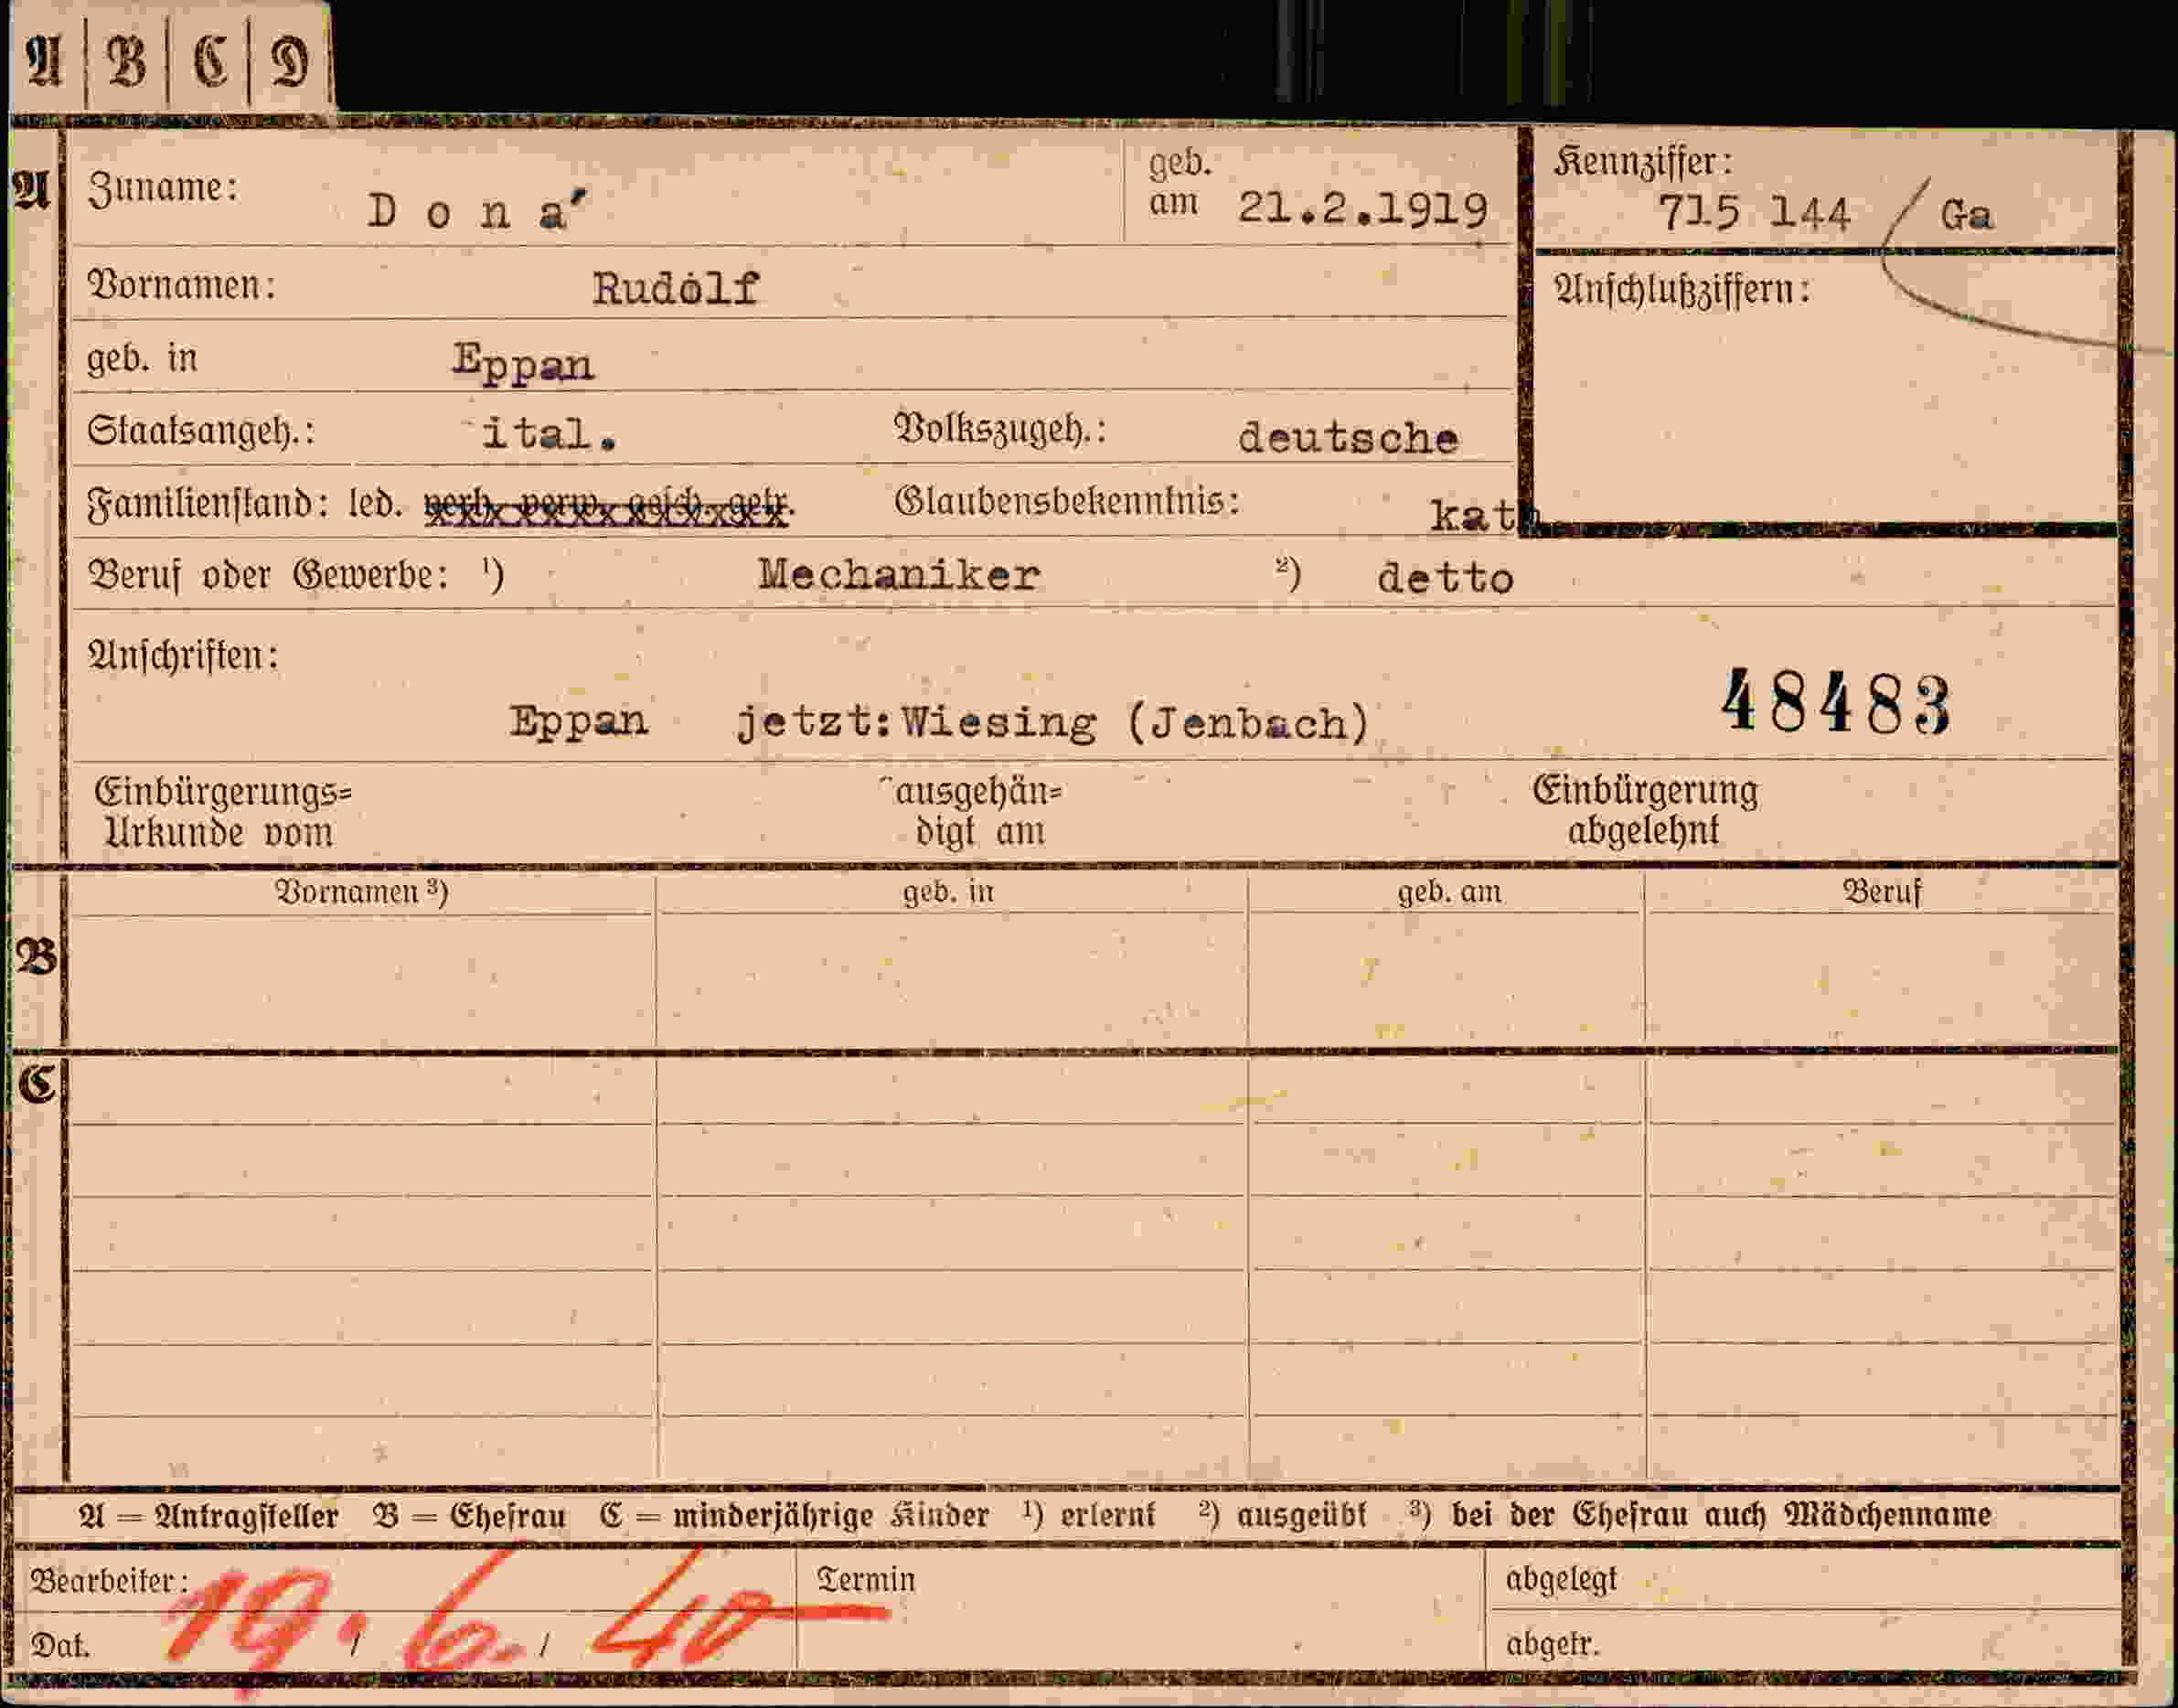 A B C D
A Zuname: Dona´ geb. am 21.2.1919 Kennziffer: 715 144 / Ga
Vornamen: Rudolf Anschlußziffern:
geb. in Eppan
Staatsangeh.: ital. Volkszugeh.: deutsche
Familienstand: led. verh. verw. gesch. getr. Glaubensbekenntnis: kath
Beruf oder Gewerbe: ¹) Mechaniker ²) detto
Anschriften:
Eppan jetzt:Wiesing (Jenbach) 48483
Einbürgerungs= ausgehän= Einbürgerung
Urkunde vom digt am abgelehnt
Vornamen ³) geb. in geb. am Beruf
B
C
A = Antragsteller B = Ehefrau C = minderjährige Kinder ¹) erlernt ²) ausgeübt ³) bei der Ehefrau auch Mädchenname
Bearbeiter: Termin abgelegt
Dat. 19. / 6. / 40 abgetr.